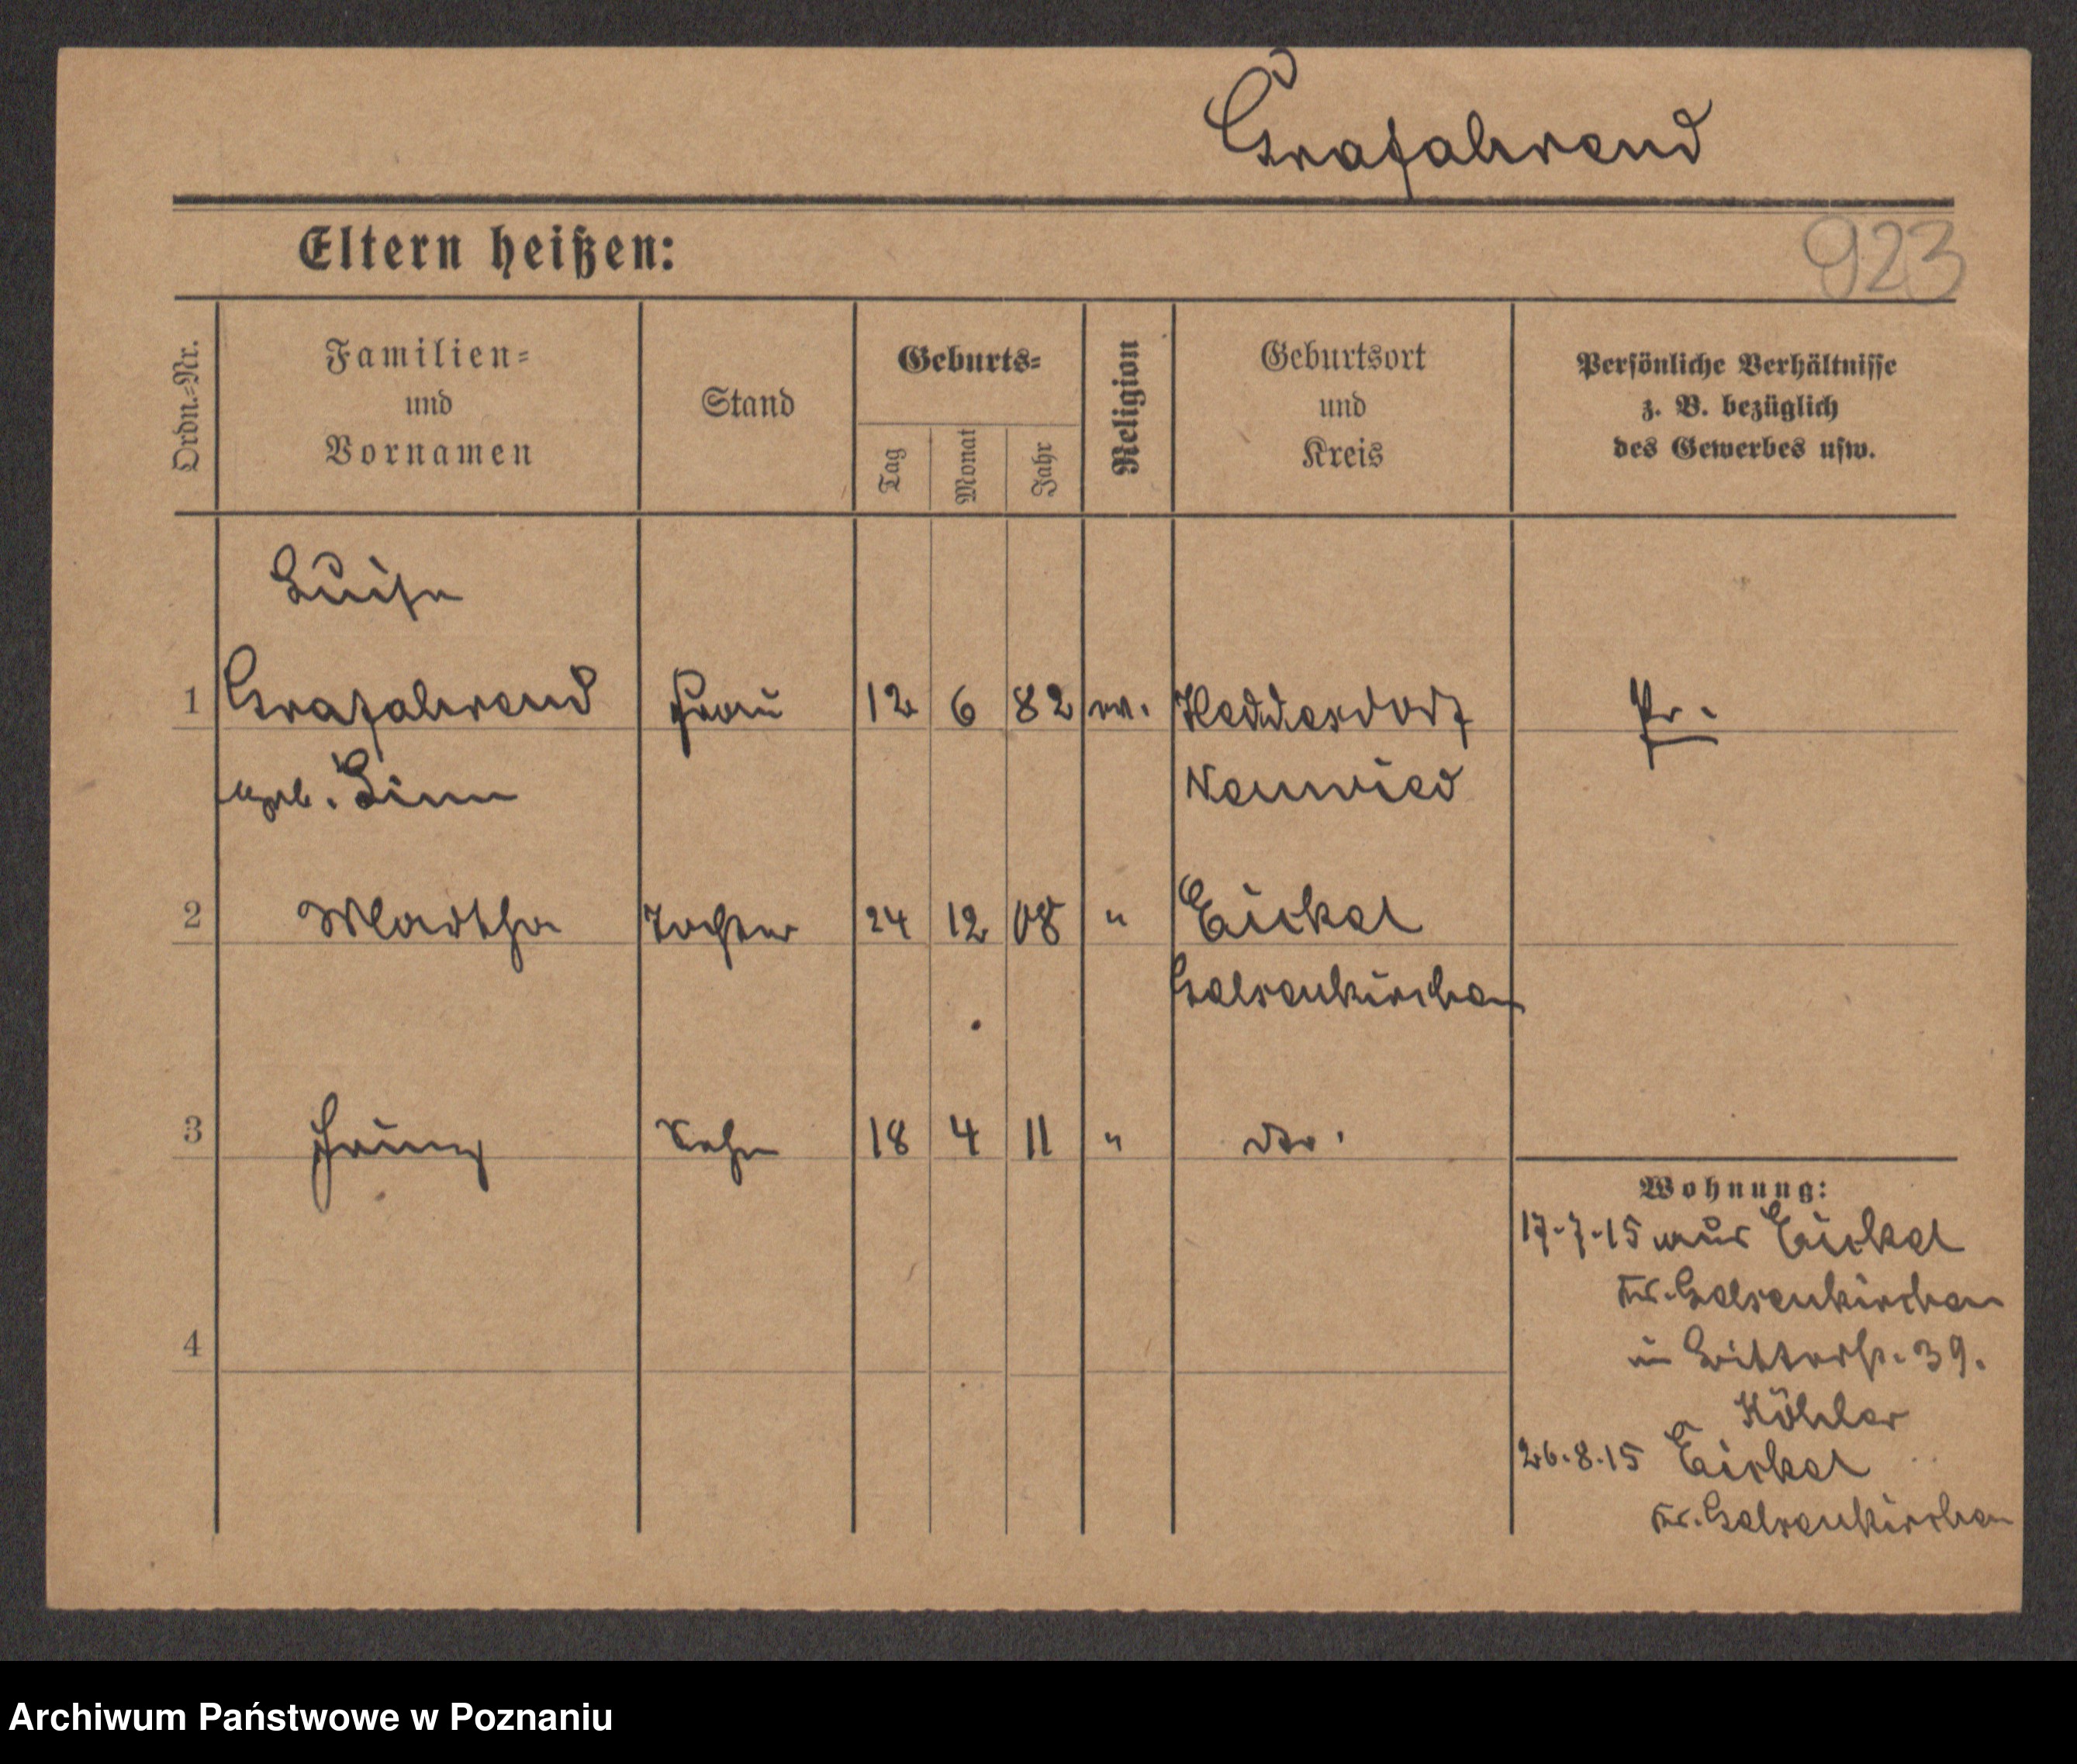 Grafahrend
Eltern heißen:
923
Ordn.-Nr.
Familien-
und
Vornamen
Stand
Geburts-
Tag
Monat
Jahr
Religion
Geburtsort
und
Kreis
Persönliche Verhältnisse
z. B. bezüglich
des Gewerbes usw.
Luise
1 Grafahrend Frau 12 6 82 ev. Heddesdorf Pr.
geb. Linn Neuwied
2 Martha Tochter 24 12 08 " Eickel
Gelsenkirchen
3 Heinz Sohn 18 4 11 " dto.
Wohnung:
17-7-15 aus Eickel
Kr. Gelsenkirchen
in Ritterstr. 39.
4
Köhler
26.8.15 Eickel
Kr. Gelsenkirchen
Archiwum Państwowe w Poznaniu